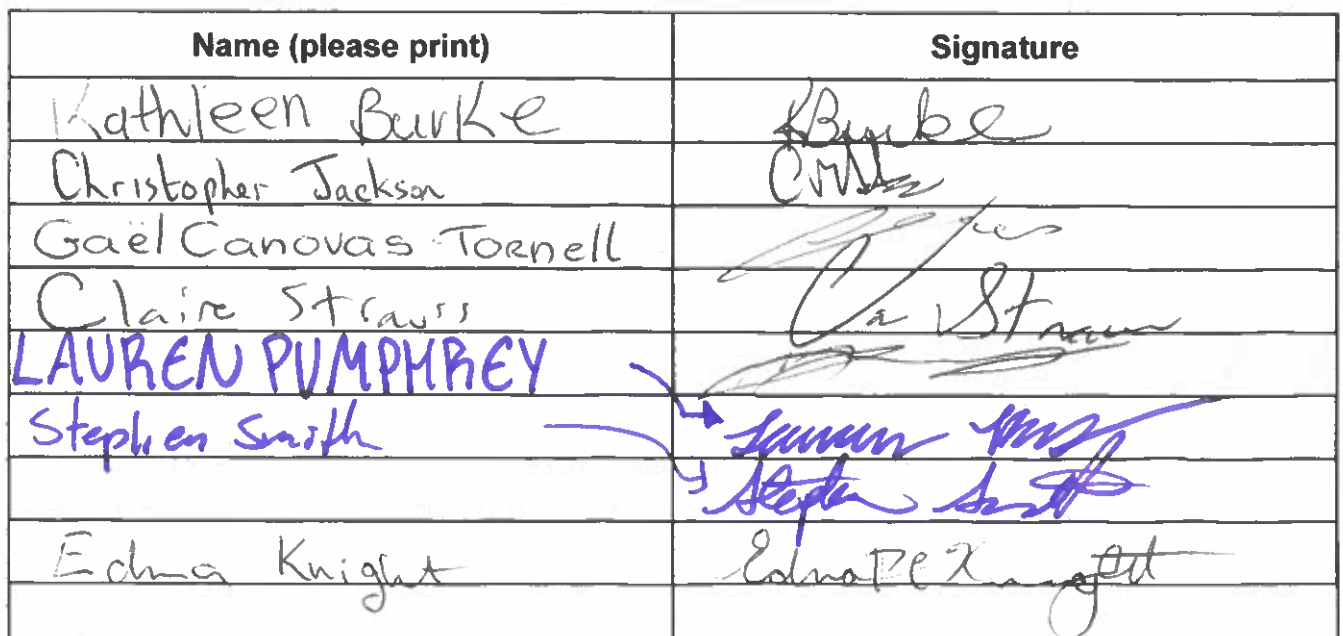 Name (please print) Signature
Kathleen Burke KBurke
Christopher Jackson
Gaël Canovas Tornell
Claire Strauss Cla Strauss
LAUREN PUMPHREY
Stephen Smith Lauren
Stephen Smith
Edna Knight Edna Knight